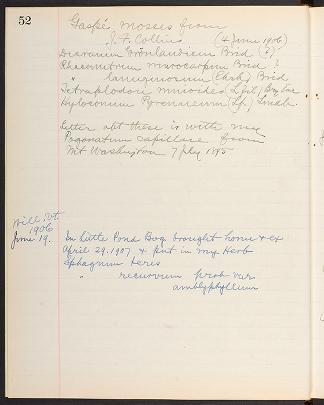 52
Gaspé mosses from
J. F. Collins (4 June 1906)
Dicranum Grönlandicum Brid (?)
Rhacomitrium microcarpum Brid ?
" lanuginosum (Ehrh) Brid
Tetraplodon mnioides (L. fil) Br &
Hylocomium Pyrenaicum (Sp.) Lindb
Letter abt these is with my
Pogonatum capillare from
Mt Washington 7 July 1895
Will. Vt
1906
June 19. In Little Pond Bog brought home & ex
April 29. 1907 & put in my Herb
Sphagnum teres
" recurvum prob var
amblyphyllum